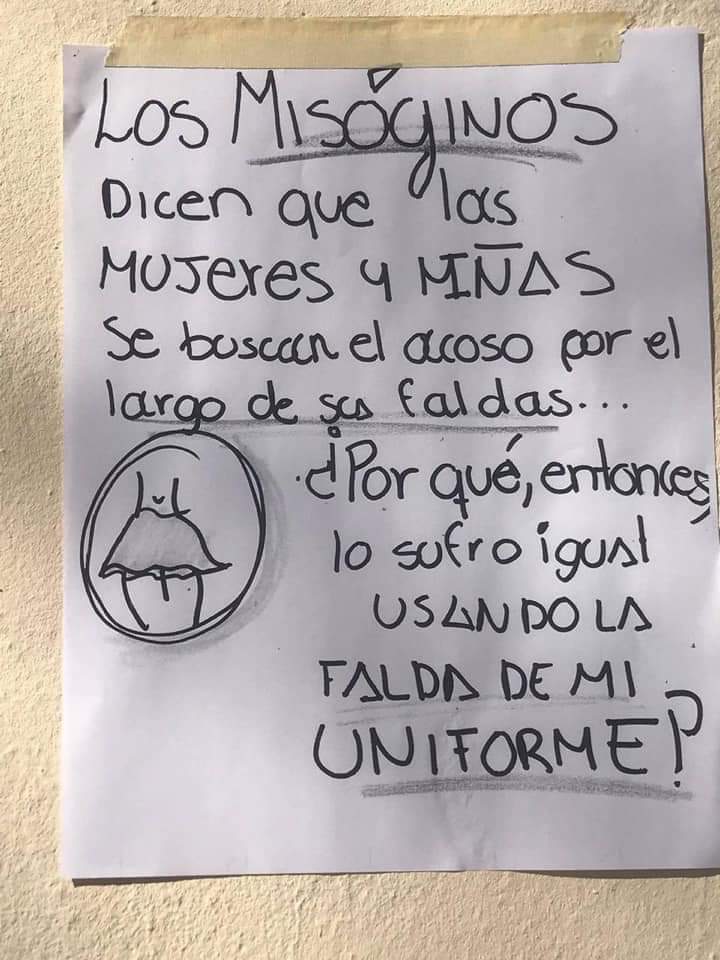 LOS MISÓGINOS
DICEN QUE las
MUJERES Y NIÑAS
Se buscan el acoso por el
largo de sus faldas...
¿Por qué, entonces,
lo sufro igual
USANDO LA
FALDA DE MI
UNIFORME?